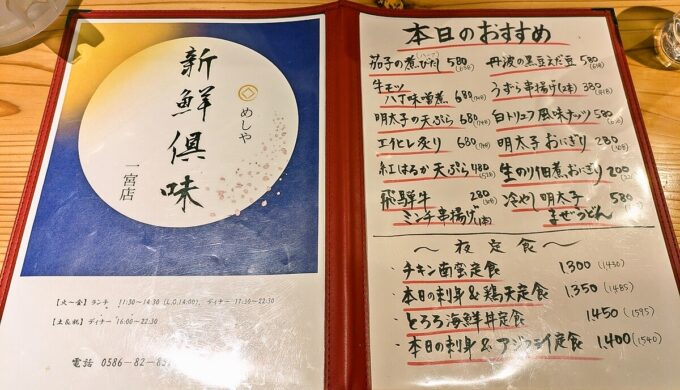 新鮮倶味
めしや
一宮店
【火～金】ランチ 11:30～14:30 (L.O.14:00), ディナー 17:30～22:30
【土&祝】ディナー 16:00～22:30
電話 0586-82-83
本日のおすすめ
茄子の煮びたし(ハーフ) 580(638)
牛モツ
八丁味噌煮 680(748)
明太子の天ぷら 680(748)
エイヒレ炙り 680(748)
紅はるか天ぷら 480(528)
飛騨牛 280(308)
ミンチ串揚げ(1本)
丹波の黒豆えだ豆 580(638)
うずら串揚げ(2本) 380(418)
白トリュフ風味ナッツ 580(638)
明太子おにぎり 280(308)
生のり佃煮おにぎり 200
冷やし明太子 580
まぜうどん
～夜定食～
・チキン南蛮定食 1.300(1430)
・本日の刺身&鶏天定食 1.350(1485)
・とろろ海鮮丼定食 1.450(1595)
・本日の刺身&アジフライ定食 1.400(1540)